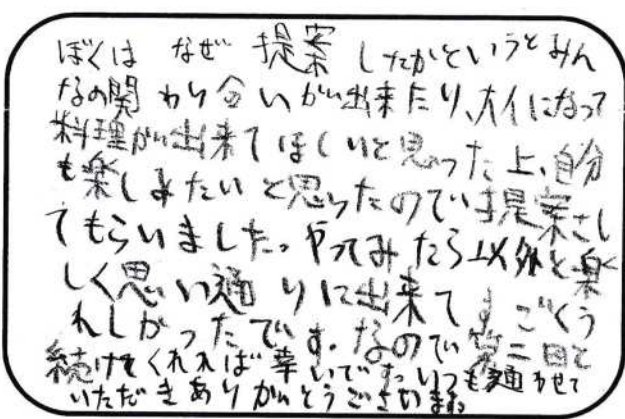 ぼくは なぜ 提案 したかというとみん
なの関わり合いが出来たり、大人になって
料理が出来てほしいと思った上、自分
も楽しみたいと思ったので提案さし
てもらいました。やってみたら以外と楽
しく思い通りに出来てすごくう
れしかったです。なので第二回と
続けてくれれば幸いです。いつも通わせて
いただきありがとうございます。